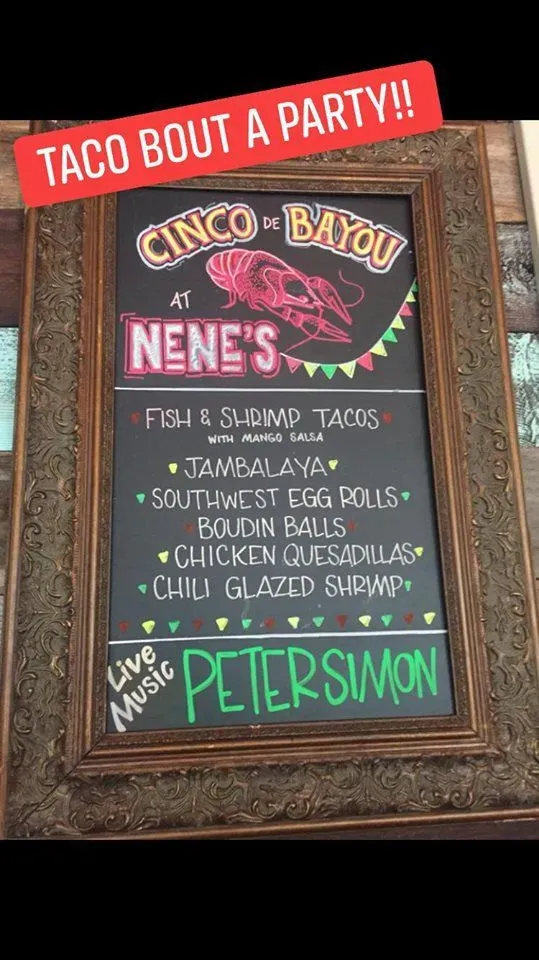 TACO BOUT A PARTY!!
CINCO DE BAYOU
AT
NENE'S
FISH & SHRIMP TACOS
WITH MANGO SALSA
JAMBALAYA
SOUTHWEST EGG ROLLS
BOUDIN BALLS
CHICKEN QUESADILLAS
CHILI GLAZED SHRIMP
Live
Music
PETER SIMON